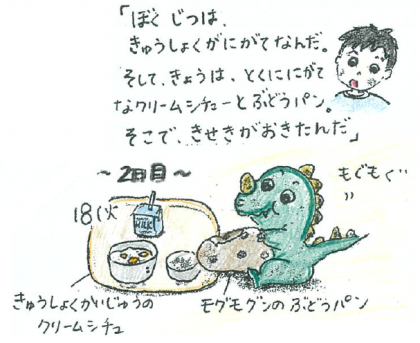 「ぼく じつは、
きゅうしょくがにがてなんだ。
そして、きょうは、とくににがて
なクリームシチューとぶどうパン。
そこで、きせきがおきたんだ」
～2日目～
もぐもぐ
18(火
MILK
きゅうしょくかいじゅうの
クリームシチュ
モグモグンのぶどうパン